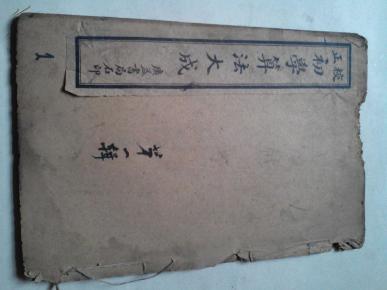 校正
初學算法大成
廣益書局石印
第一輯
1